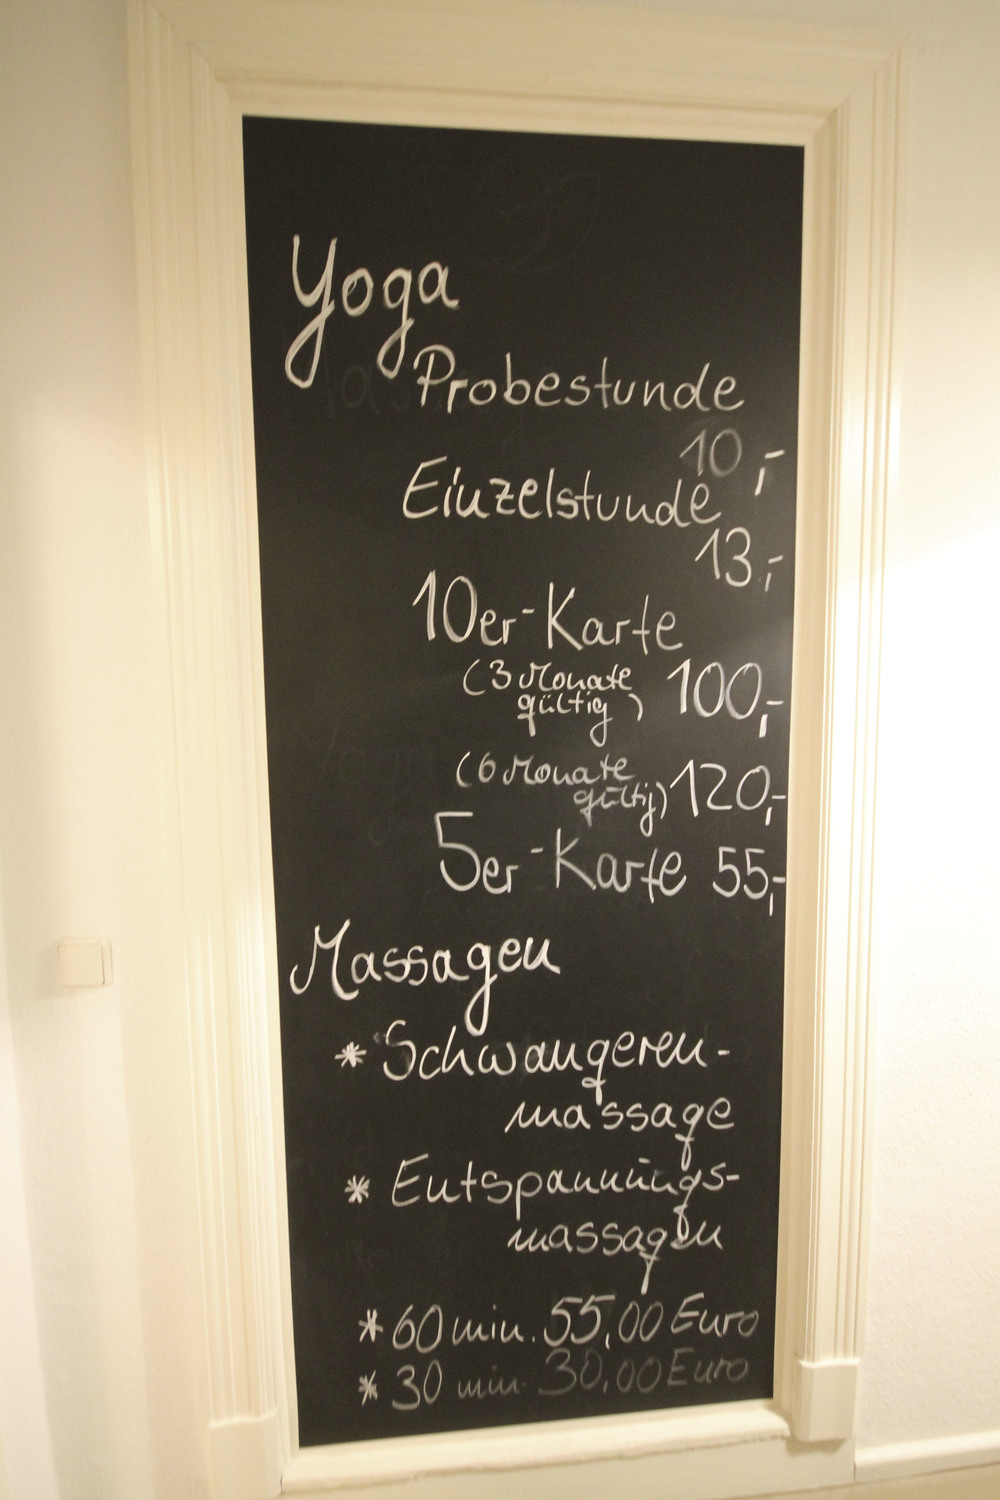 Yoga
Probestunde
10,-
Einzelstunde
13,-
10er-Karte
(3 Monate 100,-
gültig)
(6 Monate
gültig) 120,-
5er-Karte 55,-
Massagen
* Schwangeren-
massage
* Entspannungs-
massagen
* 60 min. 55,00 Euro
* 30 min. 30,00 Euro